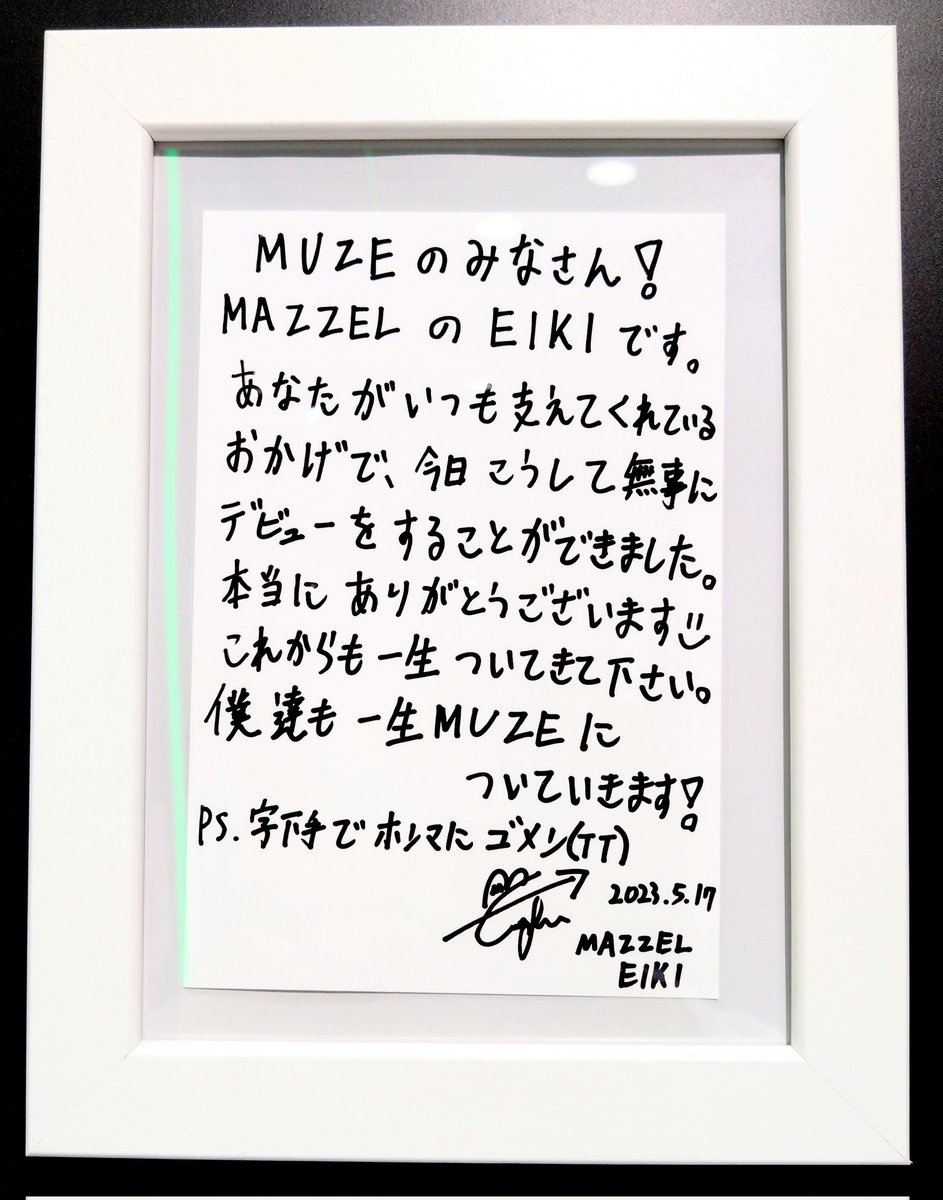 MUZEのみなさん!
MAZZELのEIKIです。
あなたがいつも支えてくれている
おかげで、今日こうして無事に
デビューをすることができました。
本当にありがとうございます
これからも一生ついてきて下さい。
僕達も一生MUZEに
ついていきます!
PS.字下手でホンマにゴメン(TT)
2023.5.17
MAZZEL
EIKI